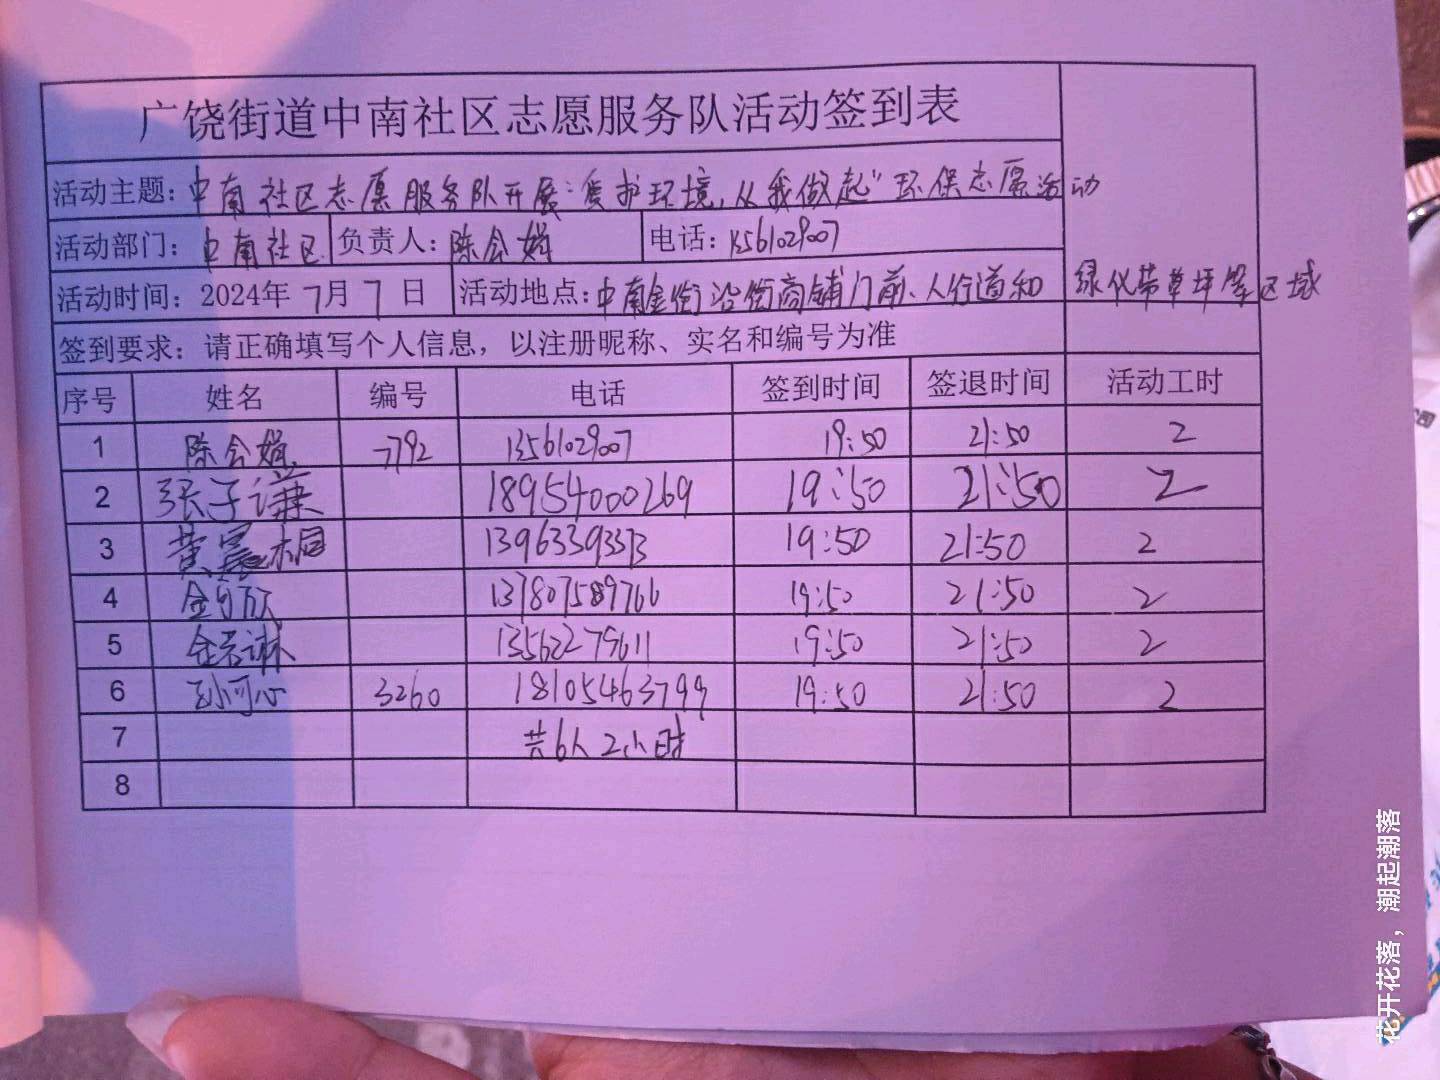 广饶街道中南社区志愿服务队活动签到表
活动主题：中南社区志愿服务队开展“爱护环境，从我做起”环保志愿活动
活动部门：中南社区 负责人：陈会娟 电话：13561029007
活动时间：2024年 7月 7 日 活动地点：中南金街沿街商铺门前、人行道和 绿化带草坪等区域
签到要求：请正确填写个人信息，以注册昵称、实名和编号为准
序号 姓名 编号 电话 签到时间 签退时间 活动工时
1 陈会娟 7792 13561029007 19:50 21:50 2
2 张子谦 18954000269 19:50 21:50 2
3 黄 桐 13963393373 19:50 21:50 2
4 19:50 21:50 2
5 13562279611 19:50 21:50 2
6 孙可心 3260 18105463799 19:50 21:50 2
7 共6人2小时
8
花开花落，潮起潮落